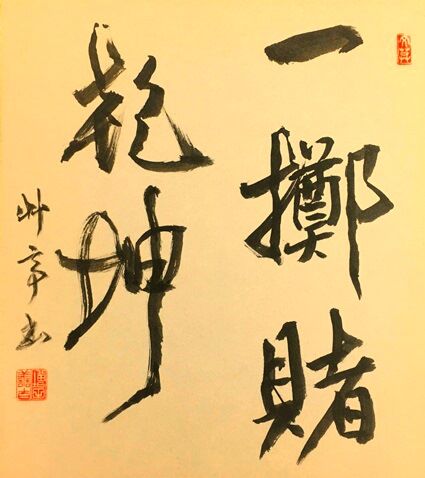 一擲賭
乾坤
艸亭書